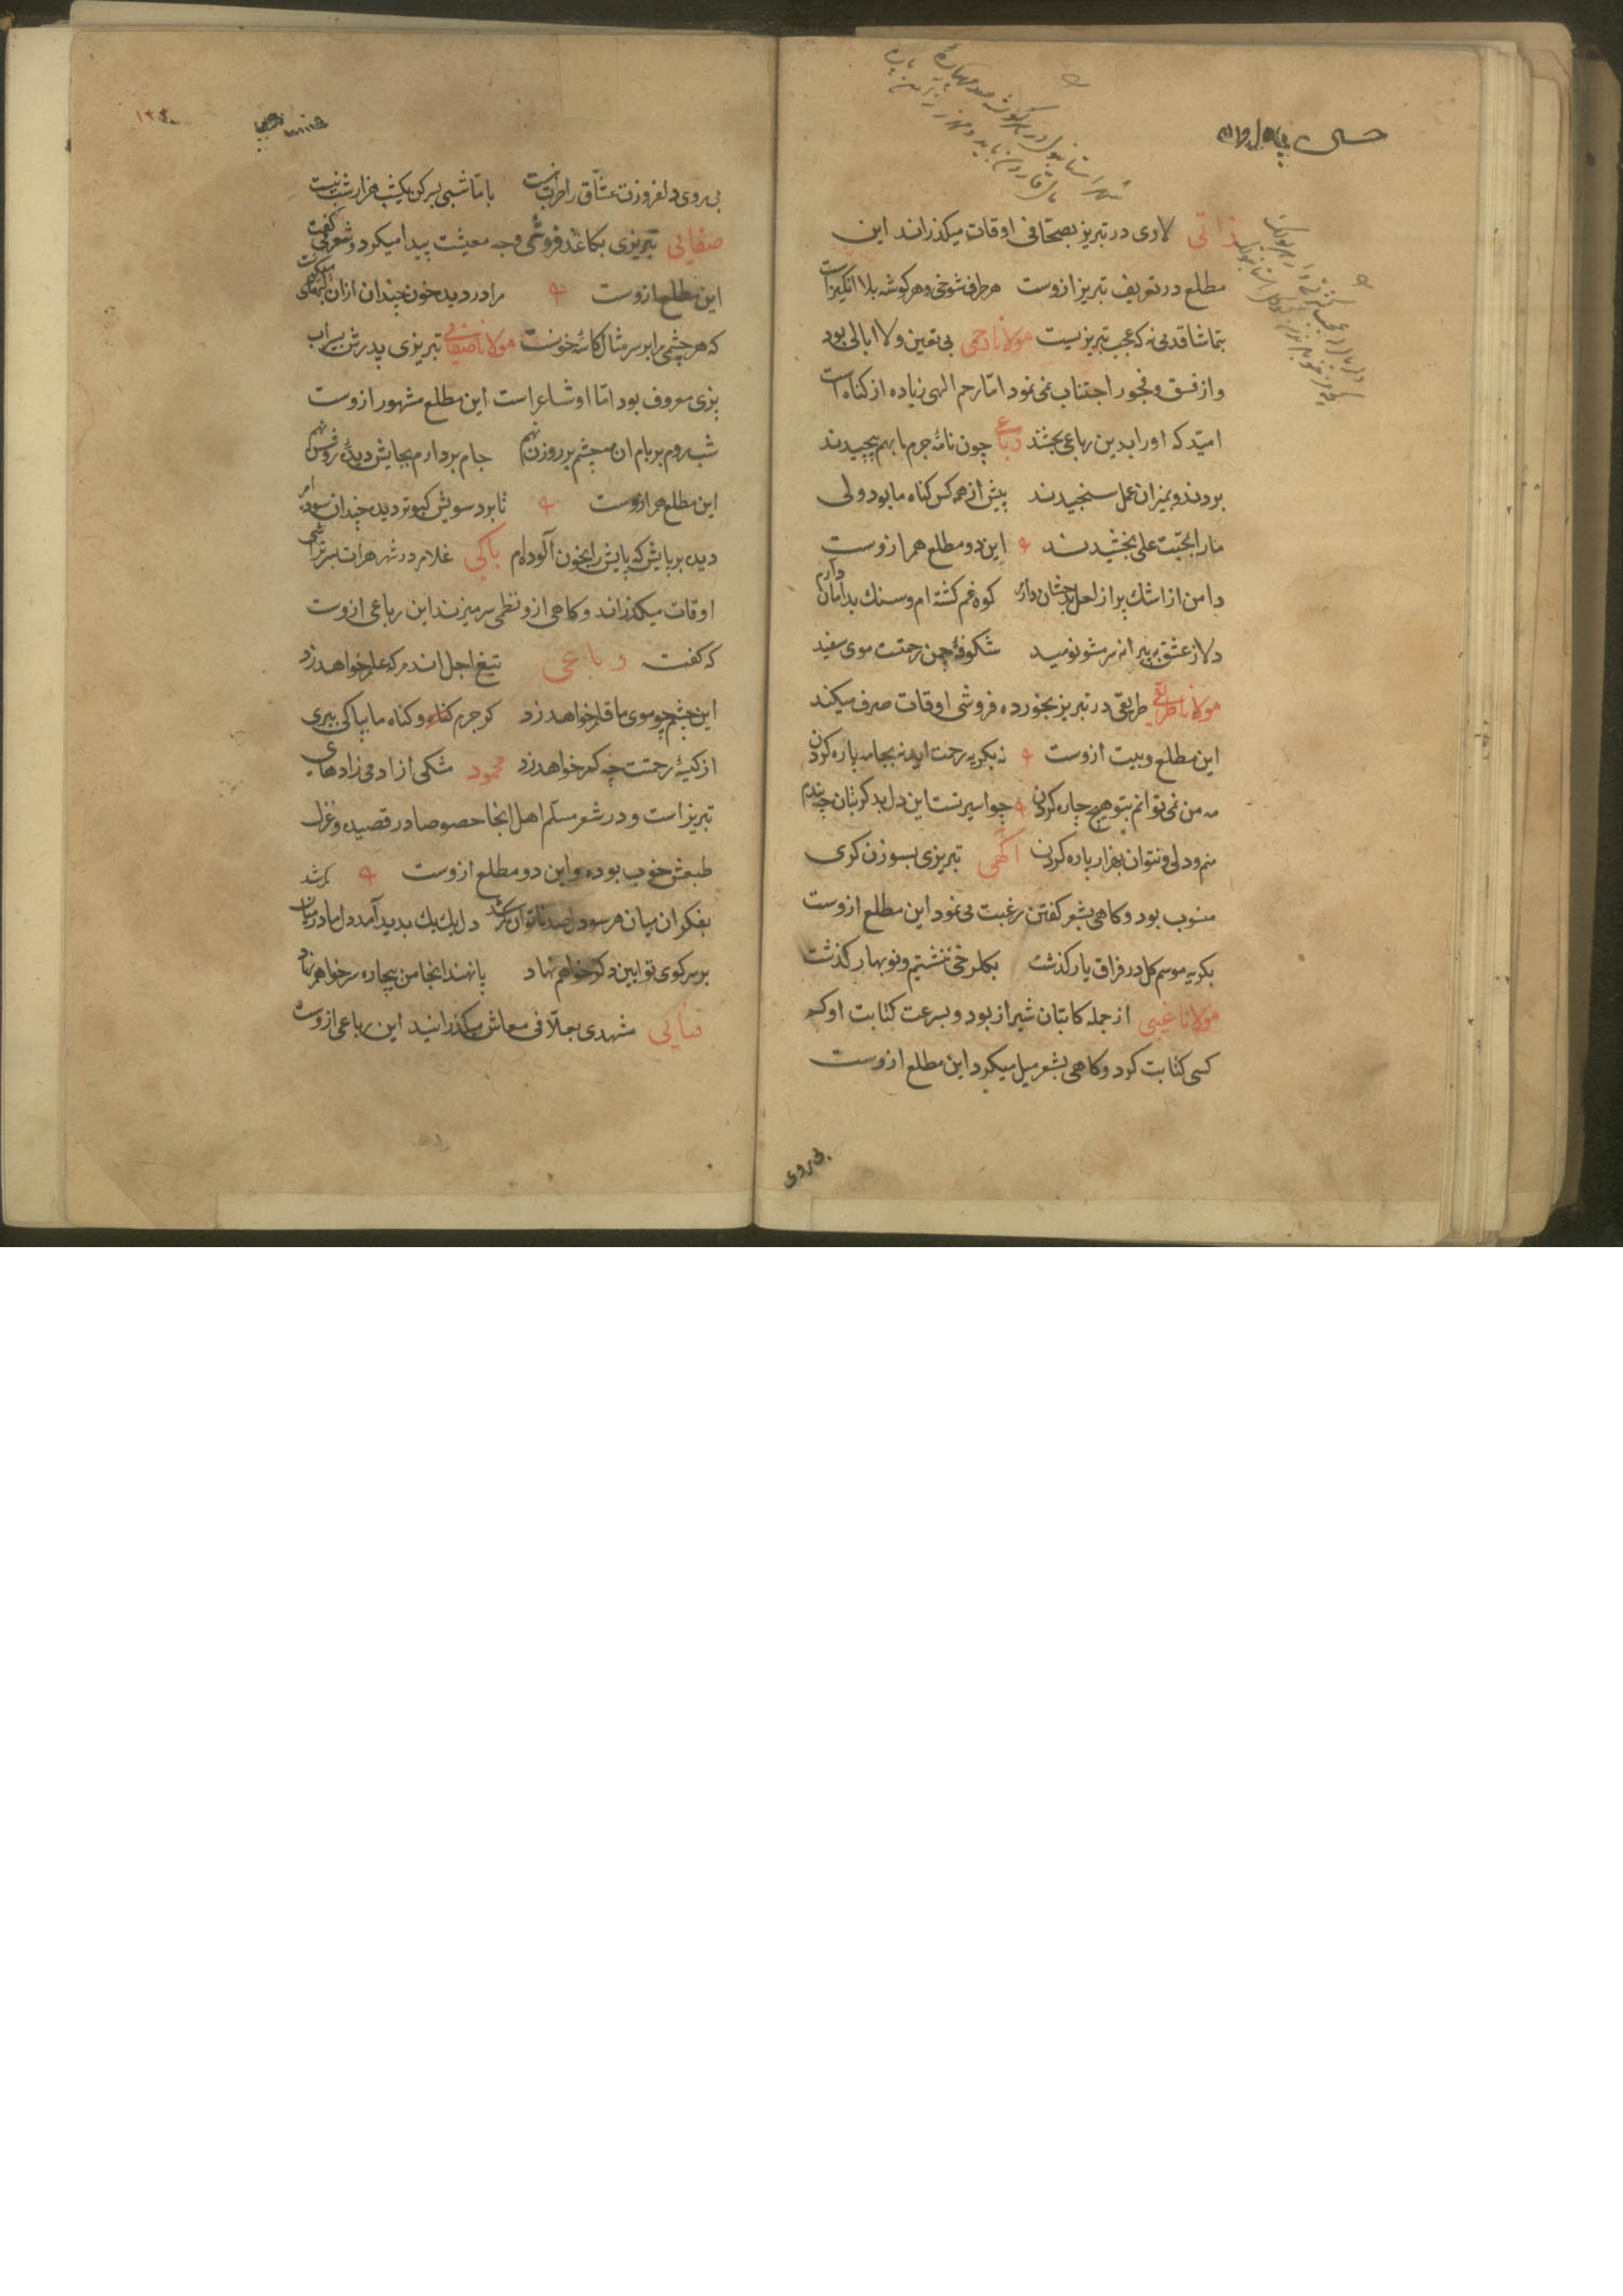 ذاتی لاری در تبریز بصحافی اوقات میکذراند این
مطلع در تعریف تبریز ازوست هر طرف شوخی و هر کوشه بلا انکیزاست
بتماشا قدمی نه که عجب تبریزیست مولانا رحمی بی تعین و لاابالی بود
و از فسق و فجور اجتناب نمی نمود امّا رحم الهی زیاده از کناه است
امیّد که او را بدین رباعی بخشند رباعی چون نامهٔ جرم ما بهم پیچیدند
بردند و بمیزان عمل سنجیدند بیش از همه کس کناه ما بود ولی
ما را بمحبّت علی بخشیدند این دو مطلع هم ازوست
دامن از اشک پر از لعل بدخشان دارم کوه غم کشته ام و سنک بدامان دارم
دلا ز عشق به پیرانه سر مشو نومید شکوفهٔ چمن رحمتست موی سفید
مولانا طریقی طریقی در تبریز بخورده فروشی اوقات صرف میکند
این مطلع و بیت ازوست نه بکریه رحمت اید نه بجامه پاره کردن
مه من نمی توانم بتو هیچ چاره کردن چو اسیر تست این دل بدکر بتان چه بندم
منم و دلی و نتوان بهزار پاره کردن آکهی تبریزی بسوزن کری
منسوب بود و کاهی بشعر کفتن رغبت می نمود این مطلع ازوست
بکریه موسم کل در فراق یار کذشت بکلرخی ننشستیم و نوبهار کذشت
مولانا غیبی از جمله کاتبان شیراز بود و بسرعت کتابت او کم
کسی کتابت کرد و کاهی بشعر میل میکرد این مطلع ازوست
بی روی
۱۳۴۰
بی روی دلفروزت عشّاق را طرب نیست با ما شبی بسر کن یکشب هزار شب نیست
صفایی تبریزی بکاغذ فروشی وجه معیشت پیدا میکرد و شعر می کفت
این مطلع ازوست مرا در دیده خون چندان ازان
که هر چشمی مرا بر سر مثال کاسهٔ خونست مولانا صفایی تبریزی پدرش بسراب
پزی معروف بود امّا او شاعر است این مطلع مشهور ازوست
شب روم بر بام ان مه چشم بر روزن نهم جام بردارم بجایش دیدهٔ روشن نهم
این مطلع هم ازوست تا برد سویش کبوتر دیده چندان سوده ام
دیده بر پایش که پایش را بخون آلوده ام باکی غلام در شهر هرات بسرتراشی
اوقات میکذراند و کاهی ازو نظمی سر میزند این رباعی ازوست
که کفت رباعی تیغ اجل اندم که علم خواهد زد
این چشم چو موی ما قلم خواهد زد کر جرم و کناه ما بپاکی ببری
از کیسهٔ رحمتت چه کم خواهد زد محمود مشکی از ادمی زادهای
تبریز است و در شعر مسلّم اهل انجا خصوصا در قصیده و غزل
طبعش خوب بوده و این دو مطلع ازوست
بفکر ان میان هر سو دل صد ناتوان کم شد دل یک یک بدید آمد دل ما در میان کم شد
بر سر کوی تو ایین دکر خواهم نهاد پا نهند انجا من بیچاره سر خواهم نهاد
فنایی مشهدی بعلّافی معاش میکذرانید این رباعی ازوست